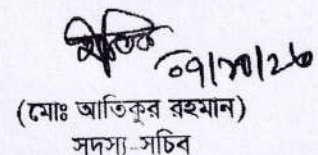 আতিক
০৭/১০/২৬
(মোঃ আতিকুর রহমান)
সদস্য-সচিব